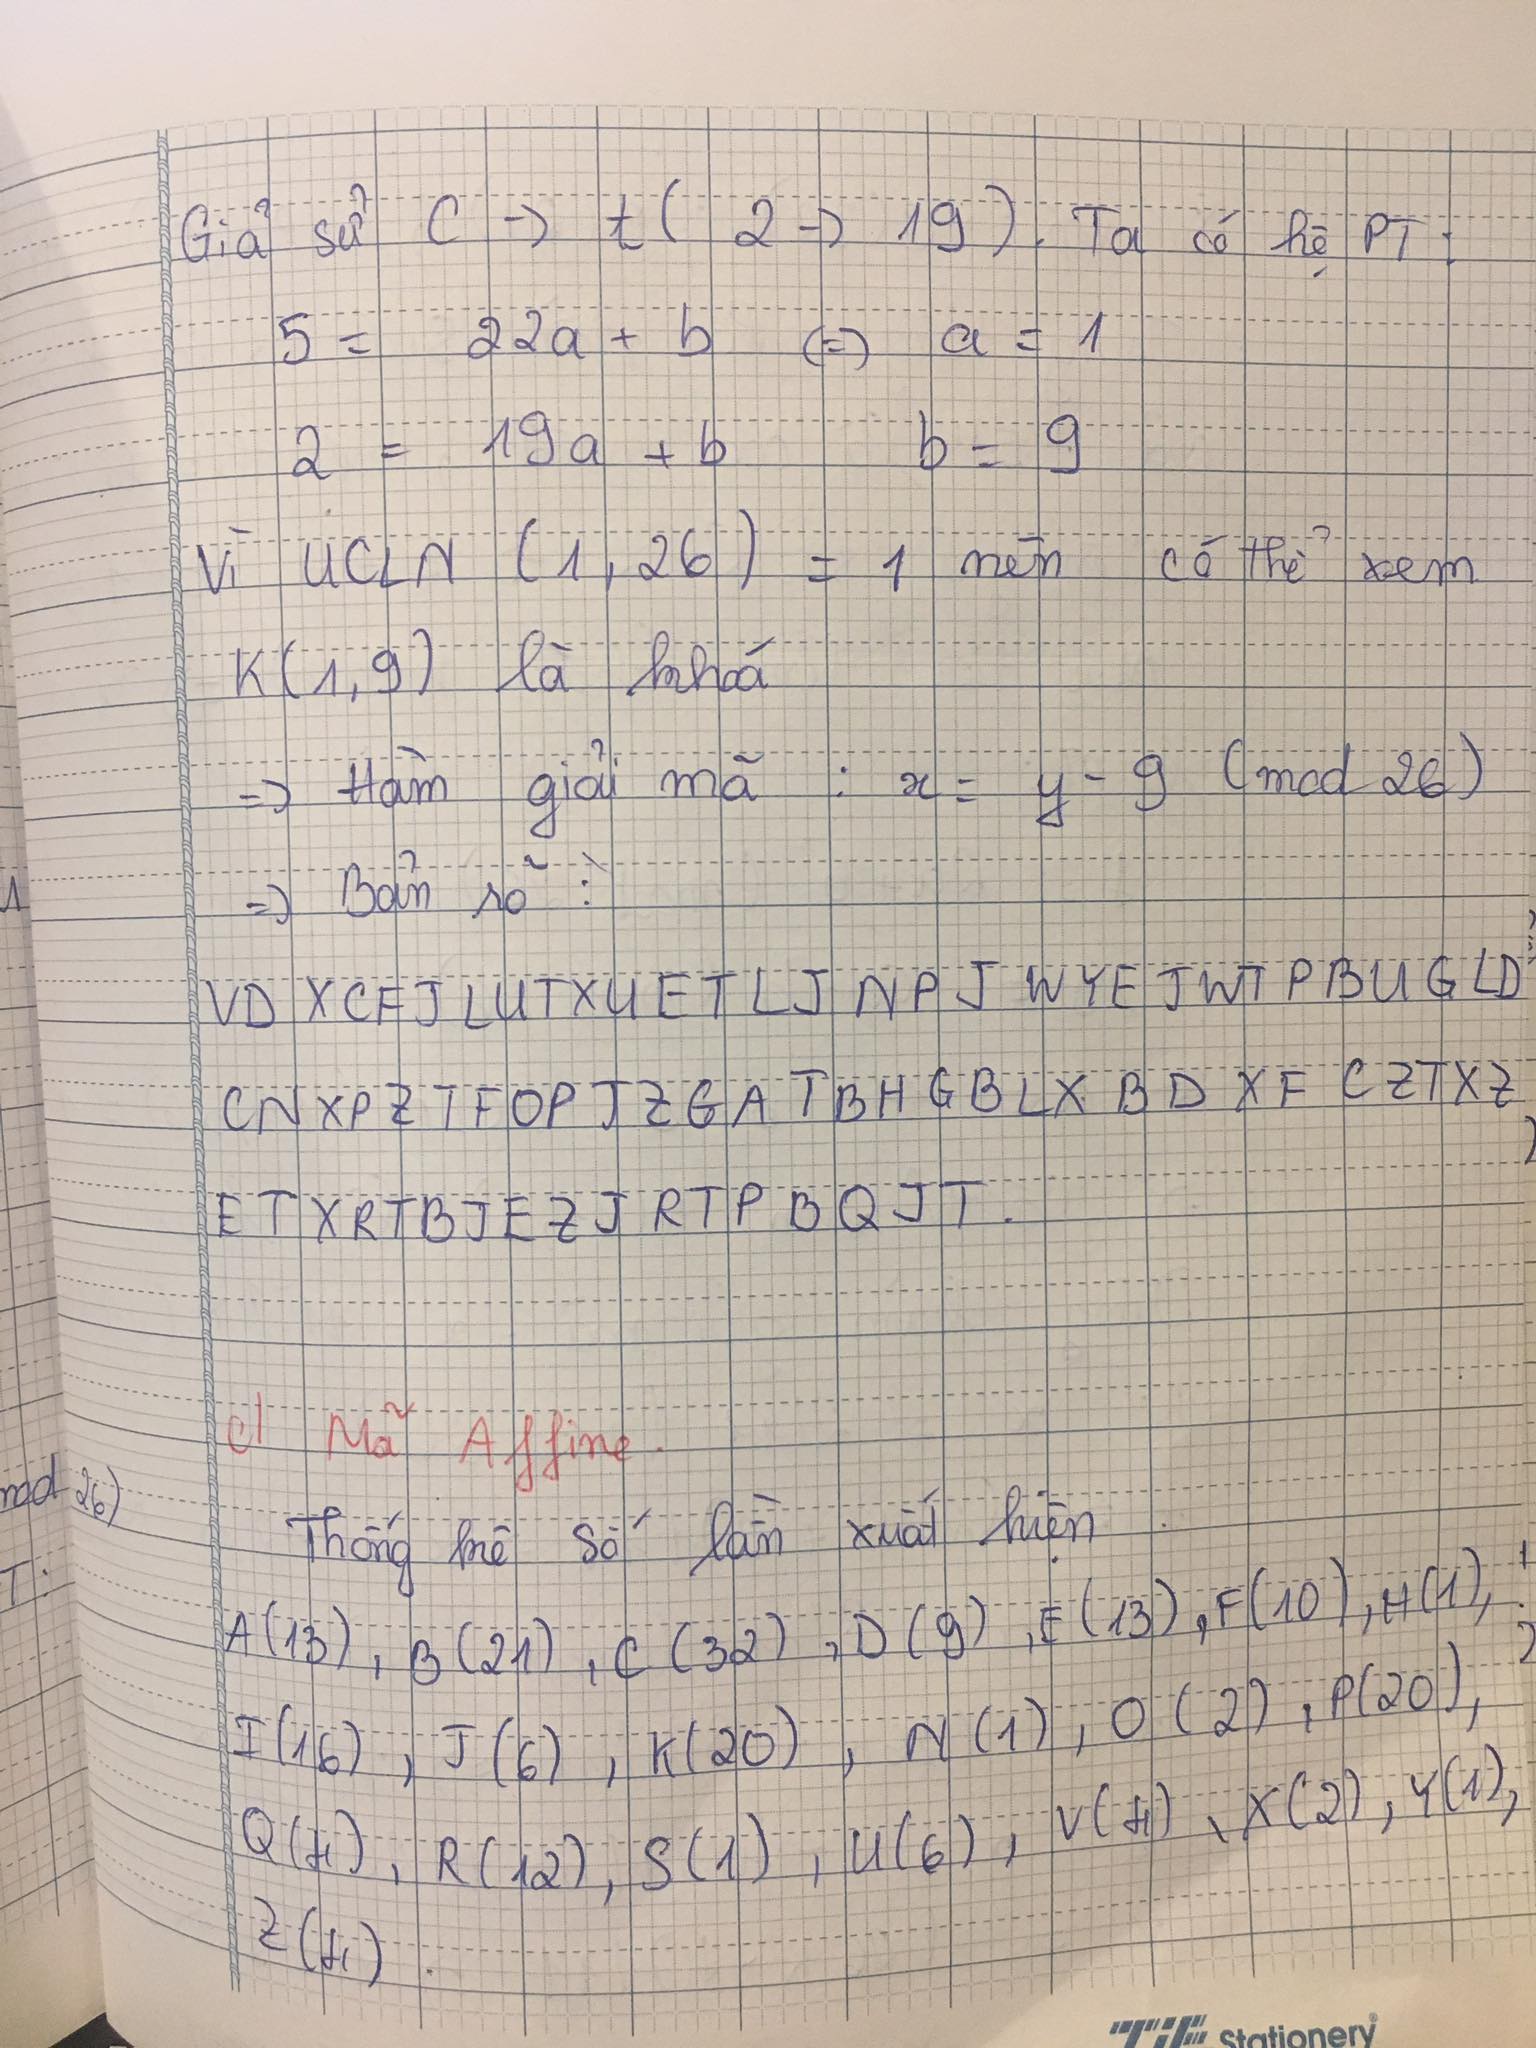 Giả sử C -> t ( 2 -> 19 ). Ta có hệ PT :
5 = 22a + b <=> a = 1
2 = 19a + b b = 9
Vì UCLN ( 1 , 26 ) = 1 nên có thể xem
K ( 1 , 9 ) là khoá
=> Hàm giải mã : x = y - 9 (mod 26)
=> Bản rõ :
VD XCFJLUTXUETLJNPJWYEJWTPBUGLD
CNXPZTFOPJZGATBHGBLXBDXFCZTXZ
ETXRTBJEZJRTPBQJT.
c) Mã Affine.
Thống kê số lần xuất hiện
A(13), B(21), C(32), D(9), E(13), F(10), H(1),
I(16), J(6), K(20), N(1), O(2), P(20),
Q(4), R(12), S(1), U(6), V(4), X(2), Y(1),
Z(4).
1
mod 26)
T:
TiE Stationery